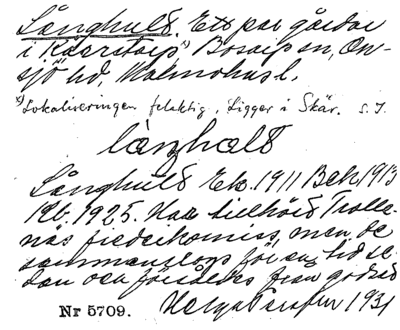 Långhult. Ett par gårdar
i Kåarstorp,x) Bosarp sn, On-
sjö hd, Malmöhus l.
x) Lokaliseringen felaktig. Ligger i Skär. S. I.
långhult
Långhult Ek. 1911 Bek. 1913
Rb. 1925. Har tillhört Trolle-
näs fideikomiss, men de
sammanslogs för en tid se-
dan och förvaldes från godset
Nr 5709. Helga 1931